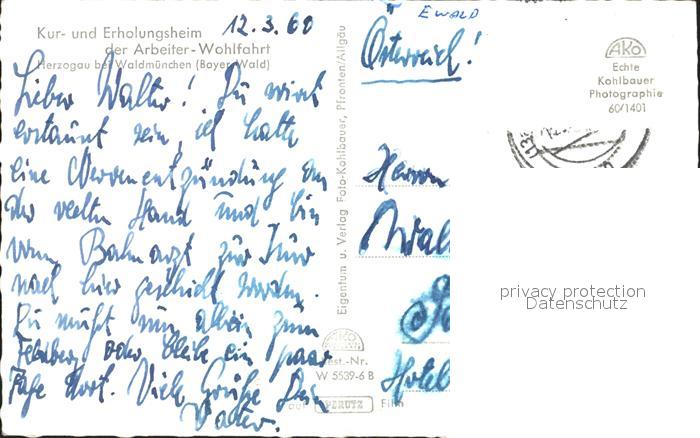 Kur- und Erholungsheim
der Arbeiter-Wohlfahrt
Herzogau bei Waldmünchen (Bayer. Wald)
12.3.60
Lieber Walter! Du wirst
erstaunt sein, ich hatte
eine Nervenentzündung an
der rechten Hand und bin
vom Bahnarzt zur Kur
nach hier geschickt worden.
Du mußt nun allein zum
oder bleib ein paar
Tage dort. Viele Grüße Dein
Walter.
Eigentum u. Verlag Foto-Kohlbauer, Pfronten/Allgäu
AKO
Best.-Nr.
W 5539-6 B
auf PERUTZ Film
EWALD
Österreich!
Herrn
Wal
Hotel
AKO
Echte
Kohlbauer
Photographie
60/1401
privacy protection
Datenschutz